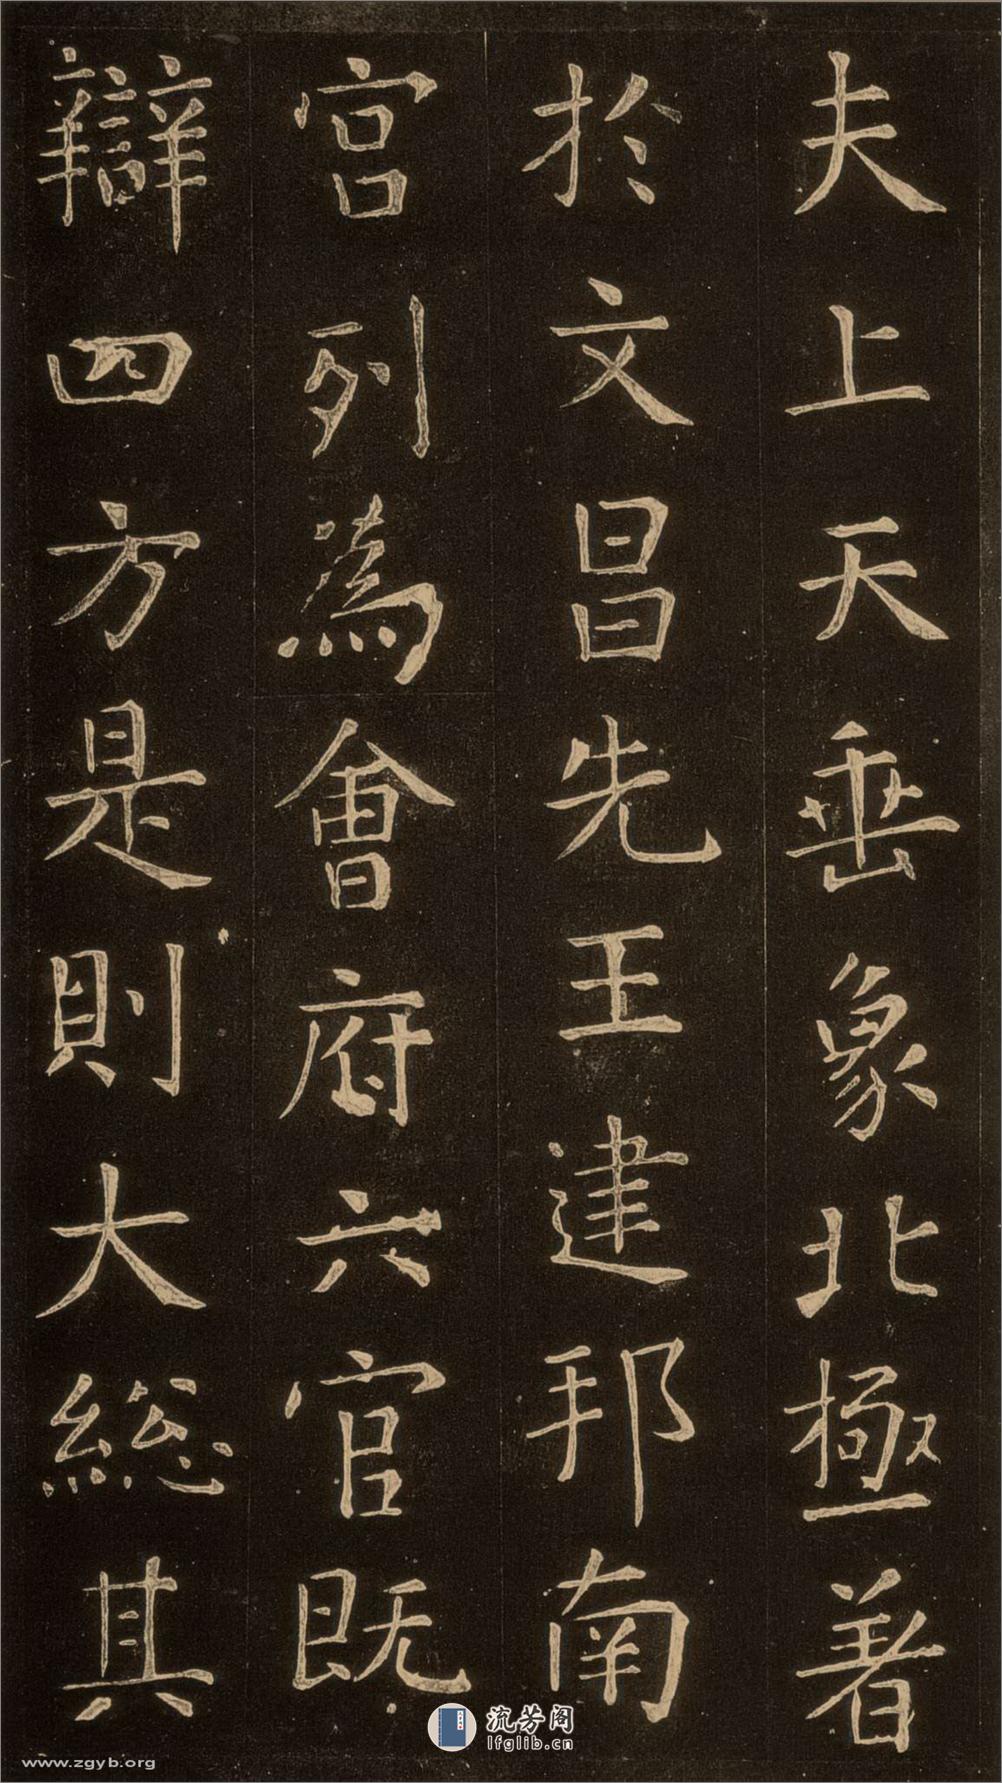 夫上天垂象北極著
於文昌先王建邦南
宮列為會府六官既
辯四方是則大總其
流芳阁
lfglib.cn
www.zgyb.org